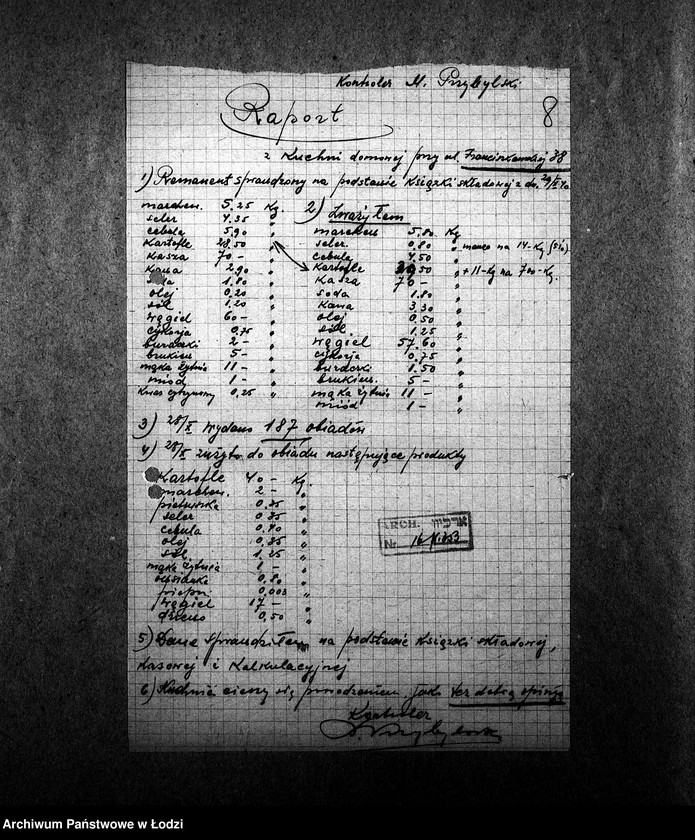 Kontroler M. Przybylski
8
Raport
z Kuchni domowej przy ul. Franciszkańskiej 38
1) Remanent sprawdzony na podstawie Książki składowej z dn. 29/X 40
marchew. 5,25 Kg.
seler 4,35 "
cebula 5,90 "
Kartofle 28,50 "
Kasza 70 — "
Kawa 2,90 "
soda 1,80 "
olej 0,20 "
sól 1,20 "
węgiel 60 — "
cykorja 0,75 "
buraczki 2 — "
brukiew 5 — "
mąka żytnia 11 — "
miód 1 — "
Kwas cytrynowy 0,25 "
2) Zważyłem
marchew 5,80 Kg
seler. 0,80 "
cebula 4,50 "
Kartofle 50 "
Kasza 70 — "
soda 1.80 "
Kawa 3.30 "
olej 0.50 "
sól 1.25 "
węgiel 57.60 "
cykorja 0.75 "
buraczki 1.50 "
brukiew. 5 — "
mąka żytnia 11 — "
miód 1 — "
manco na 14-Kg (5%)
+ 11-Kg na 700-Kg.
3) 28/X wydano 187 obiadów
4) 28/X zużyto do obiadu następujące produkty
Kartofle 40 — Kg.
marchew. 2 — "
pietruszka 0,35 "
seler 0,35 "
cebula 0,40 "
olej 0,35 "
sól 1,25 "
mąka żytnia 1 — "
0,80 "
pieprz. 0,003 "
węgiel 17 — "
drzewo 0,50 "
ARCH. ארכיוו
Nr.
5) Dane sprawdziłem na podstawie Książki składowej,
Kasowej i Kalkulacyjnej
6) Kuchnia cieszy się powodzeniem, jako też dobrą opinją
Kontroler
Archiwum Państwowe w Łodzi